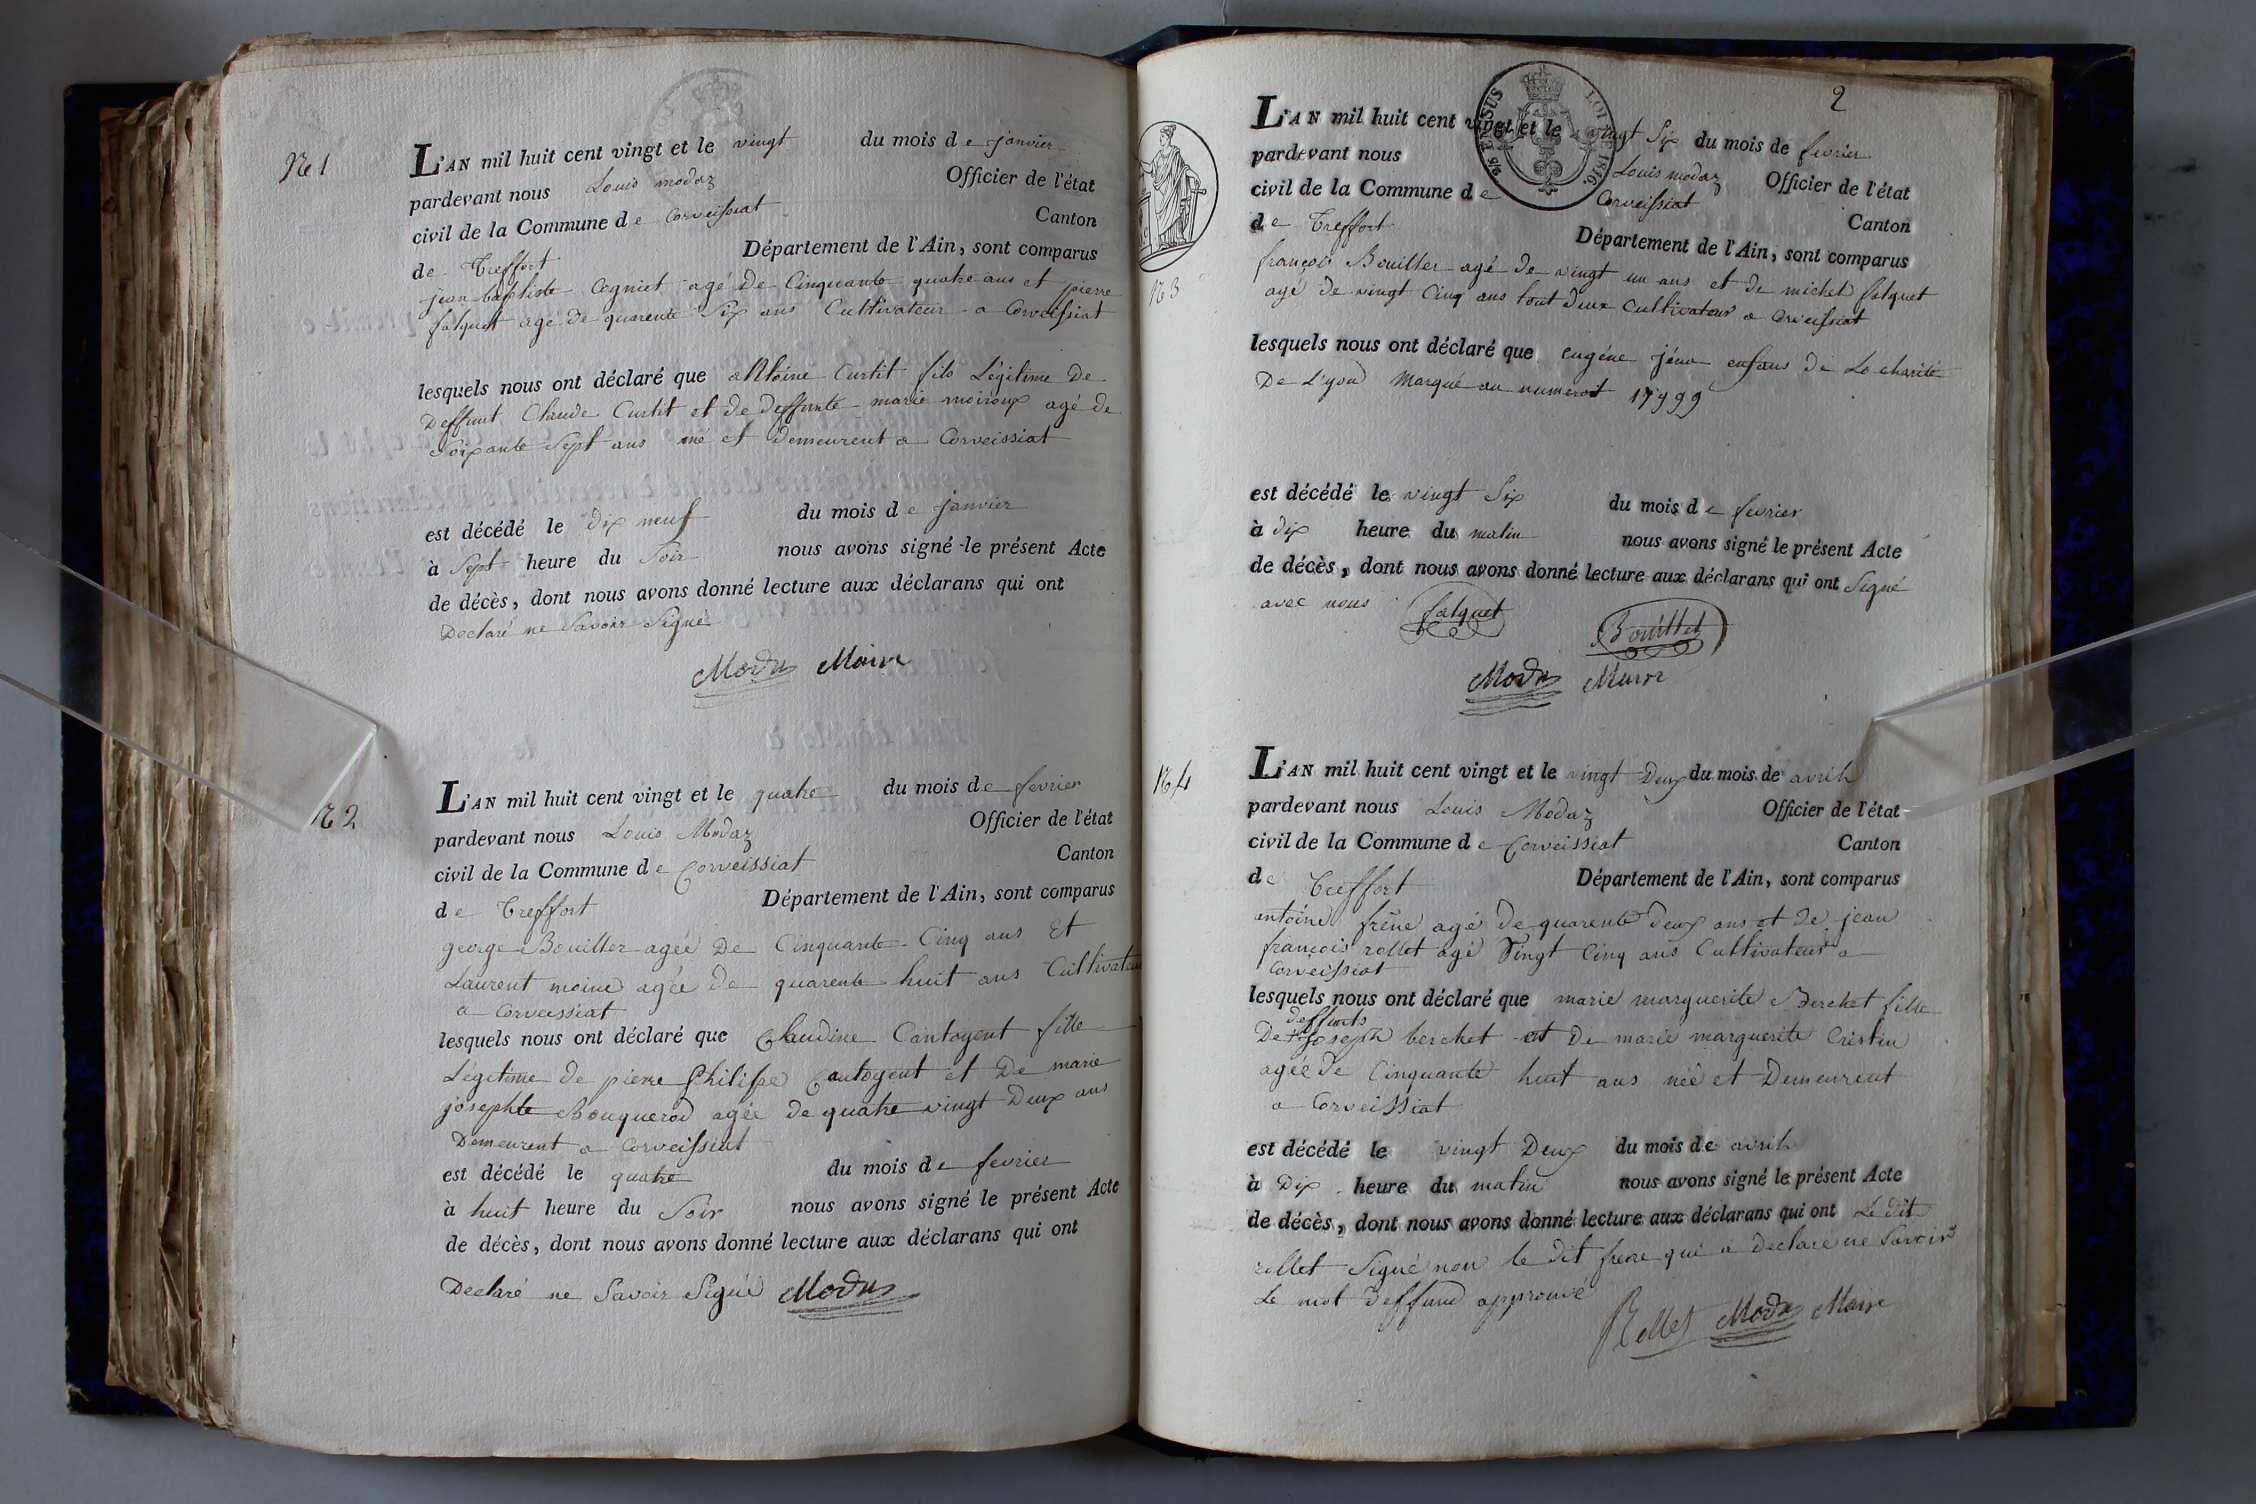 N° 1
L'AN mil huit cent vingt et le vingt du mois de janvier
pardevant nous Louis modaz Officier de l'état
civil de la Commune de Corveissiat Canton
de Treffort Département de l'Ain, sont comparus
jean baptiste Cogniet agé De Cinquante quatre ans et pierre
falquet agé de quarente Six ans Cultivateur a Corveissiat
lesquels nous ont déclaré que antoine Curtit fils Légitime De
Deffunt Claude Curtit et de deffunte marie moiroux agé de
Soixante Sept ans né et Demeurent a Corveissiat
est décédé le dix neuf du mois de janvier
à Sept heure du Soir nous avons signé le présent Acte
de décès, dont nous avons donné lecture aux déclarans qui ont
Declaré ne Savoir Signé
Modaz Maire
N° 2
L'AN mil huit cent vingt et le quatre du mois de fevrier
pardevant nous Louis Modaz Officier de l'état
civil de la Commune de Corveissiat Canton
de Treffort Département de l'Ain, sont comparus
george Bouiller agée De Cinquante Cinq ans Et
Laurent moine agée De quarente huit ans Cultivateur
a Corveissiat
lesquels nous ont déclaré que Claudine Cantogent fille
Légitime de pierre Philipe Cantogent et De marie
josephte Bouquerod agée de quatre vingt Deux ans
Demeurent a Corveissiat
est décédé le quatre du mois de fevrier
à huit heure du Soir nous avons signé le présent Acte
de décès, dont nous avons donné lecture aux déclarans qui ont
Declaré ne Savoir Signé Modaz
2
EN SUS
LOI DE 1816
L'AN mil huit cent vingt et le vingt Six du mois de fevrier
pardevant nous Louis modaz Officier de l'état
civil de la Commune de Corveissiat Canton
de Treffort Département de l'Ain, sont comparus
N° 3
françois Bouiller agé de vingt un ans et de michel falquet
agé de vingt Cinq ans tout deux Cultivateur a Corveissiat
lesquels nous ont déclaré que eugéne enfans de La charité
De Lyon Marqué au numerot 17999
est décédé le vingt Six du mois de fevrier
à dix heure du matin nous avons signé le présent Acte
de décès, dont nous avons donné lecture aux déclarans qui ont Signé
avec nous falquet
Bouillet
Modaz Maire
N° 4
L'AN mil huit cent vingt et le vingt Deux du mois de avril
pardevant nous Louis Modaz Officier de l'état
civil de la Commune de Corveissiat Canton
de Treffort Département de l'Ain, sont comparus
antoine frêne agé De quarente Deux ans et de jean
françois rollet agé Vingt Cinq ans Cultivateur a
Corveissiat
lesquels nous ont déclaré que marie marguerite Berchet fille
deffunts
De joseph berchet et De marie marguerite Cristin
agée De Cinquante huit ans née et Demeurent
a Corveissiat
est décédé le vingt Deux du mois de avril
à Dix heure du matin nous avons signé le présent Acte
de décès, dont nous avons donné lecture aux déclarans qui ont Le dit
rollet Signé non le dit frene qui a Declaré ne Savoir
Le mot deffund approuvé
Rollet Modaz Maire